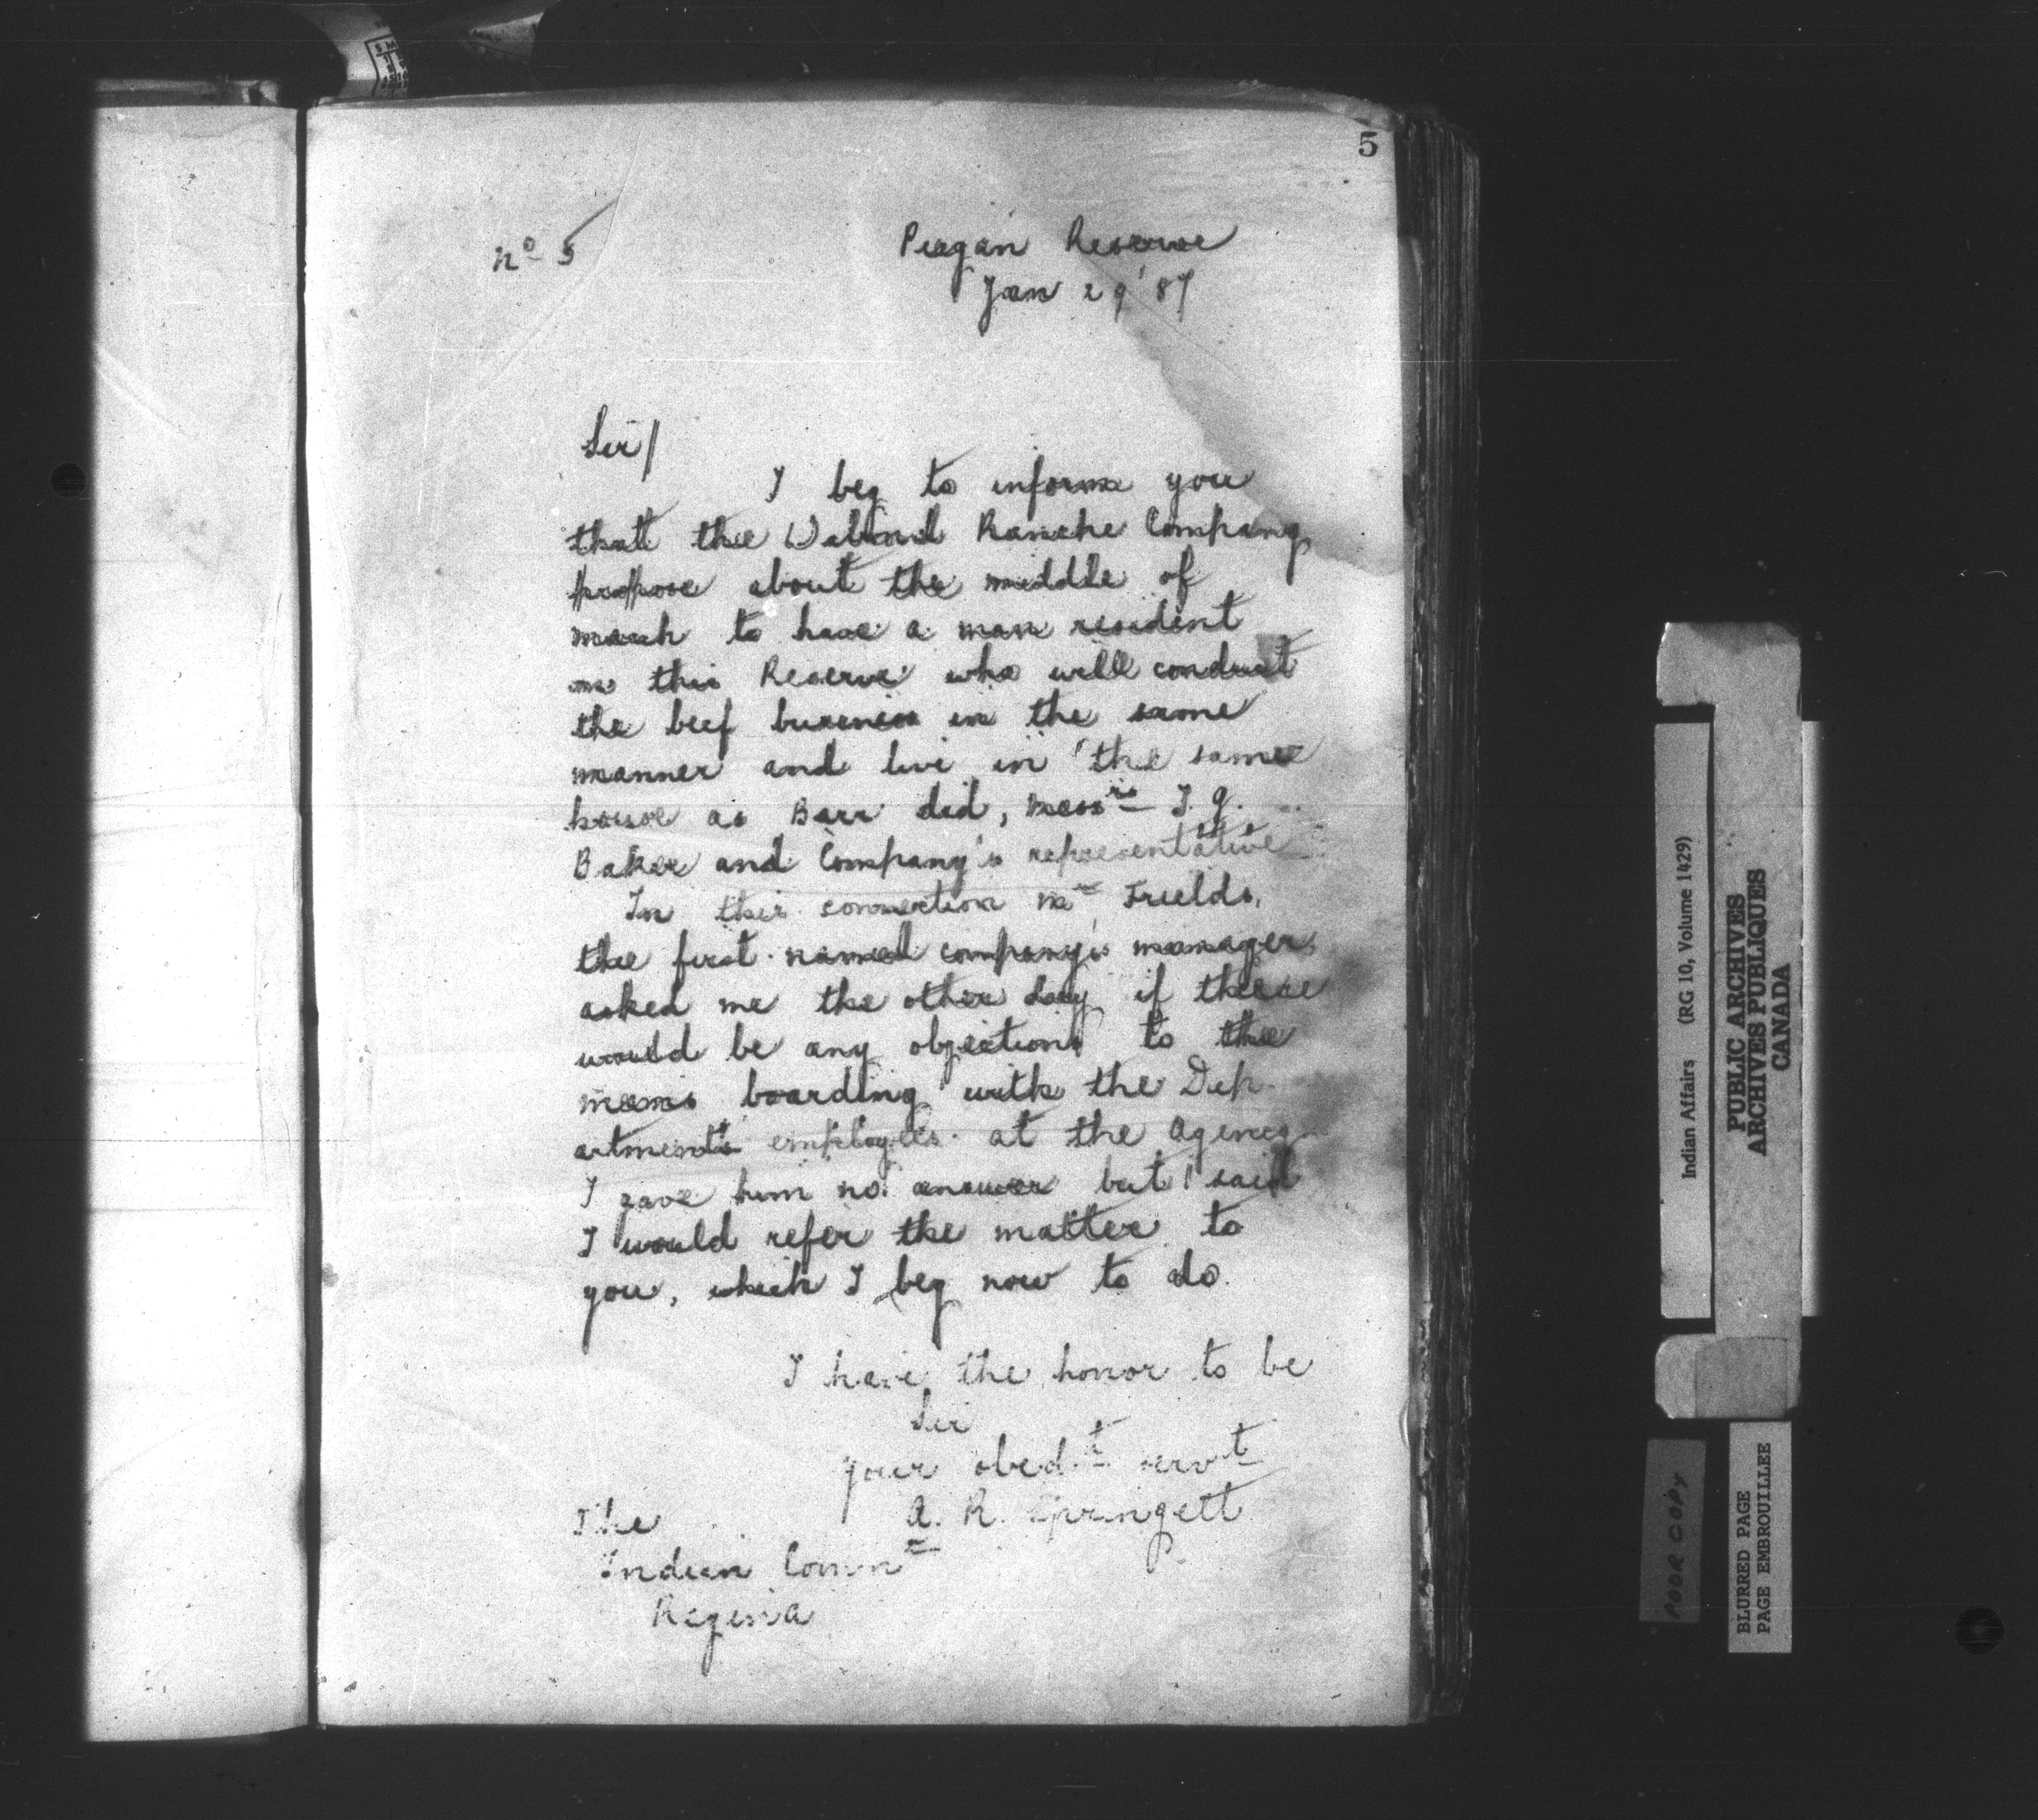 5
No 5
Piegan Reserve
Jan 29 '87
Sir/
I beg to inform you
that the Walrond Ranche Company
propose about the middle of
march to have a man resident
on this Reserve who will conduct
the beef business in the same
manner and live in the same
house as Barr did, Messrs I. G.
Baker and Company's representative
In this connection Mr Fields,
the first named company's manager
asked me the other day if there
would be any objections to the
mans boarding with the Dep-
artments employees at the Agency
I gave him no answer but I said
I would refer the matter to
you, which I beg now to do.
I have the honor to be
Sir
your obedt servt
A. R. Springett
The
Indian Commr
Regina
Indian Affairs (RG 10, Volume 1429)
PUBLIC ARCHIVES
ARCHIVES PUBLIQUES
CANADA
POOR COPY
BLURRED PAGE
PAGE EMBROUILLEE